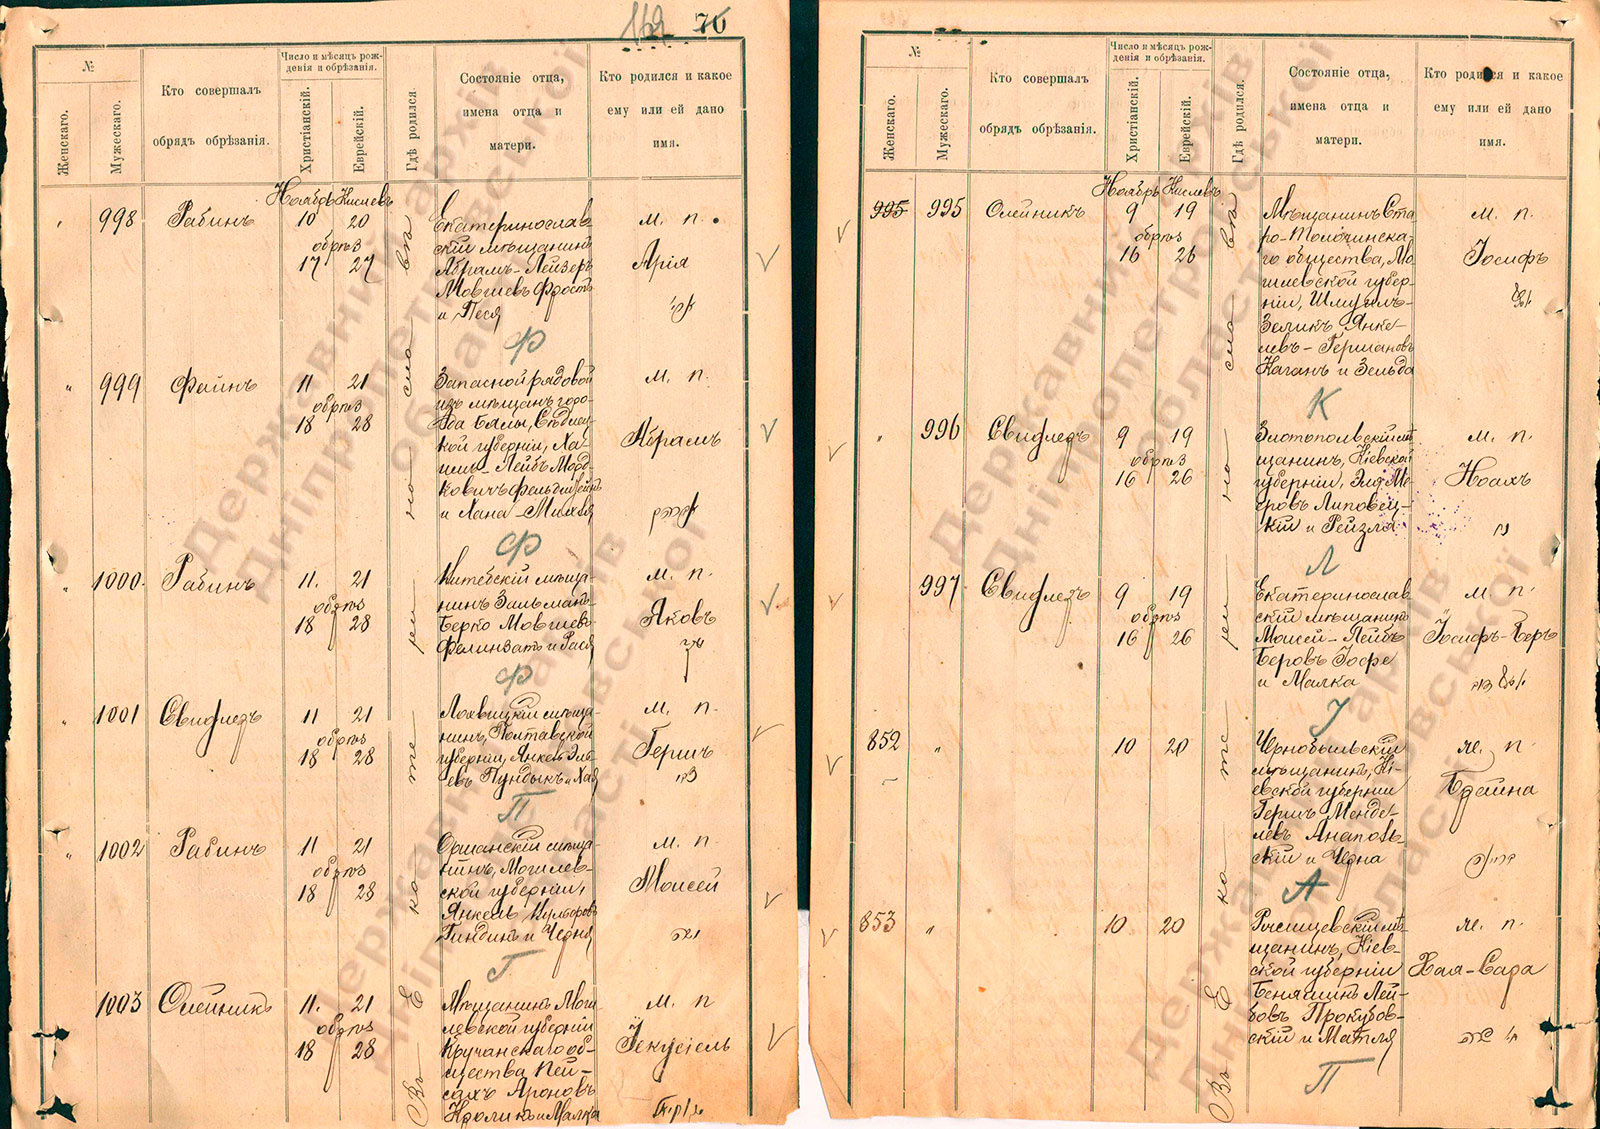 162 76
№
Женскаго.
Мужескаго.
Кто совершалъ
обрядъ обрѣзанія.
Число и мѣсяцъ рож-
денія и обрѣзанія.
Христіанскій.
Еврейскій.
Гдѣ родился
Состояніе отца,
имена отца и
матери.
Кто родился и какое
ему или ей дано
имя.
Ноябрь Кислевъ
Въ Екатеринославѣ
998 Рабинъ 10 20
обрѣз
17 27
Екатеринослав-
скій мѣщанинъ
Абрамъ-Лейзеръ
Мовшевъ Фростъ
и Песя
м. п.
Арія
Ф
999 Фейнъ 11 21
обрѣз
18 28
Запасной рядовой
изъ мѣщан горо-
да Бялы, Сѣдлец-
кой губерніи, Ха-
имъ-Лейбъ Морд-
ковичъ
и Хана-
м. п.
Абрамъ
Ф
1000 Рабинъ 11. 21
обрѣз
18 28
Витебскій мѣща-
нинъ Зальманъ-
Берко Мовшевъ
и Рася
м. п.
Яковъ
Ф
1001 Свифледъ 11 21
обрѣз
18 28
Лохвицкій мѣща-
нинъ, Полтавской
губерніи, Янкель Эль-
евъ Пундыкъ и Хая
м. п.
Гершъ
П
1002 Рабинъ 11 21
обрѣз
18 28
Оршанскій мѣща-
нинъ, Могилев-
ской губерніи,
Янкель
Гиндинъ и Черня
м. п.
Моисей
Г
1003 Олейникъ 11. 21
обрѣз
18 28
Мѣщанинъ Моги-
левской губерніи
Кручанскаго об-
щества Пей-
сахъ Ароновъ
Кроликъ и Малка
м. п
Іекусіель
№
Женскаго.
Мужескаго.
Кто совершалъ
обрядъ обрѣзанія.
Число и мѣсяцъ рож-
денія и обрѣзанія.
Христіанскій.
Еврейскій.
Гдѣ родился.
Состояніе отца,
имена отца и
матери.
Кто родился и какое
ему или ей дано
имя.
Ноябрь Кислевъ
Въ Екатеринославѣ
995 995 Олейникъ 9 19
обрѣз
16 26
Мѣщанинъ Ста-
ро-Толочинска-
го общества, Мо-
гилевской губер-
ніи, Шмуилъ-
Зеликъ Янке-
левъ-Гершановъ
Каганъ и Зельда
м. п.
Іосифъ
К
996 Свифледъ 9 19
обрѣз
16 26
Златопольскій мѣ-
щанинъ, Кіевской
губерніи, Эля Ме-
еровъ Липовец-
кій и Рейзля
м. п.
Ноахъ
נח
Л
997 Свифледъ 9 19
обрѣз
16 26
Екатеринослав-
скій мѣщанинъ
Моисей-Лейбъ
Беровъ Іоффе
и Малка
м. п.
Іосифъ-Беръ
І
852 10 20
Чернобыльскій
мѣщанинъ, Кі-
евской губерніи
Гершъ Менде-
левъ Анаполь-
скій и Черна
ж. п.
Брайна
А
853 10 20
мѣ-
щанинъ, Кіев-
ской губерніи
Беньяминъ Лей-
бовъ Прокупов-
скій и Матля
ж. п.
Хая-Сара
П
Державний архів
Дніпропетровської
області